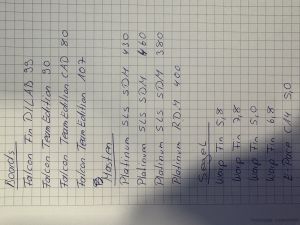 Boards
Falcon Fin D/LAB 99
Falcon Team Edition 90
Falcon Team Edition CAD 80
Falcon Team Edition 107
Masten
Platinum SLS SDM 430
Platinum SLS SDM 460
Platinum SLS SDM 380
Platinum RDM 400
Segel
Warp Fin 5,8
Warp Fin 7,8
Warp Fin 5,0
Warp Fin 6,8
E Pace C14 5,0